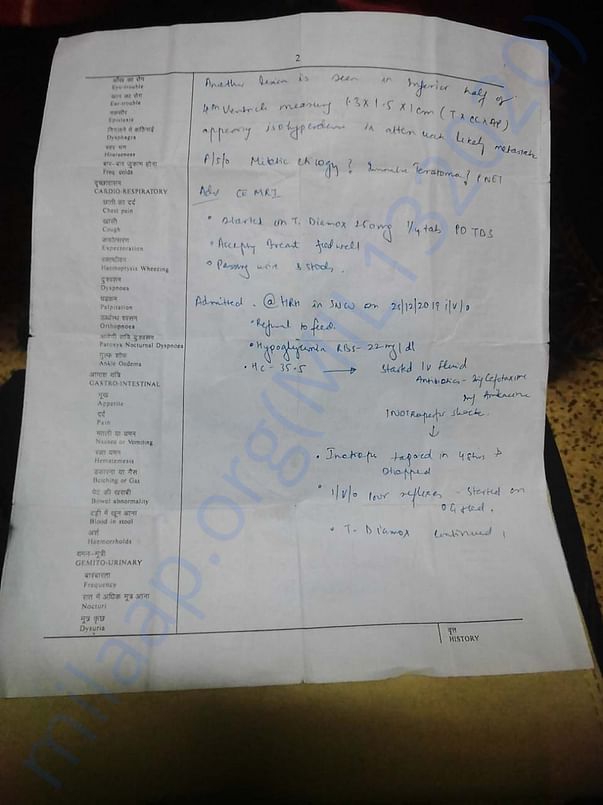 2
आँख का रोग
Eye-trouble
कान का रोग
Ear-trouble
नकसीर
Epistexis
निगलने में कठिनाई
Dysphagia
स्वर भंग
Hoarseness
बार-बार जुकाम होना
Freq. colds
CARDIO-RESPIRATORY
छाती का दर्द
Chest pain
खाँसी
Cough
कफोत्सारण
Expectoration
रक्तष्ठीवन
Haemoptysis Wheezing
दुःश्वसन
Dyspnoea
धड़कन
Palpitation
Orthopnoea
Paroxys Nocturnal Dyspnoea
गुल्फ शोफ
Ankle Oedema
GASTRO-INTESTINAL
भूख
Appetite
दर्द
Pain
मतली या वमन
Nausea or Vomiting
रक्त वमन
Hematemesis
डकारना या गैस
Belching or Gas
पेट की खराबी
Bowel abnormality
टट्टी में खून आना
Blood in stool
अर्श
Haemorrholds
GEMITO-URINARY
बारंबारता
Frequency
रात में अधिक मूत्र आना
Nocturi
मूत्र कृच्छ
Dysuria
Another lesion is seen in Inferior half of
4th ventricle measuring 1.3 X 1.5 X 1 cm (T X CC X AP)
appearing isohyperdense in likely metastatic
Etiology ? Immature Teratoma ? PNET
Adv CE MRI
• Started on T. Diamox 250mg 1/4 tab PO TDS
• Accepting Breast feed well
• Passing urine & stools.
Admitted @ MRH in SNCU on 25/12/2019 i/v/o
• Refusal to feed.
• Hypoglycemia RBS- 22 mg/dl
• HC - 35.5 → Started IV fluid
Antibiotics - Inj Cefotaxime
Inj Amikacin
INOTropes for shock.
↓
• Inotrope tapered in 48hrs &
stopped
• I/V/O poor reflexes - Started on
OG feed.
• T. Diamox continued,
वृत्त
HISTORY
milaap.org(MIL132020)